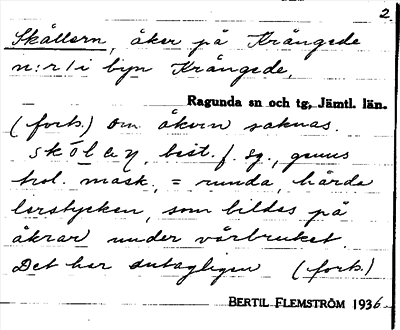 2
Skållern, åker på Krångede
n:r 1 i byn Krångede.
Ragunda sn och tg, Jämtl. län.
(forts.) Om åkern saknas.
best. f. sg., genus
trol. mask., = runda, hårda
lerstycken, som bildas på
åkrar under vårbruket.
Det har antagligen (forts.)
BERTIL FLEMSTRÖM 1936.